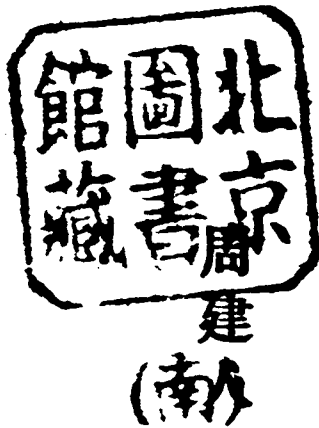 北京
圖書
館藏
周建
(南